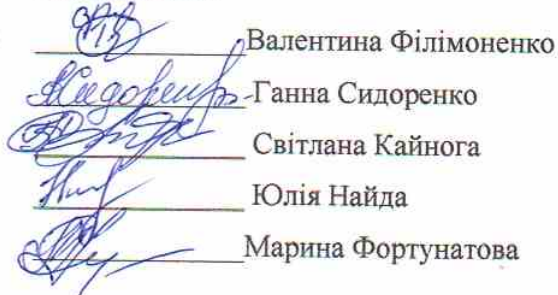 Валентина Філімоненко
Ганна Сидоренко
Світлана Кайнога
Юлія Найда
Марина Фортунатова